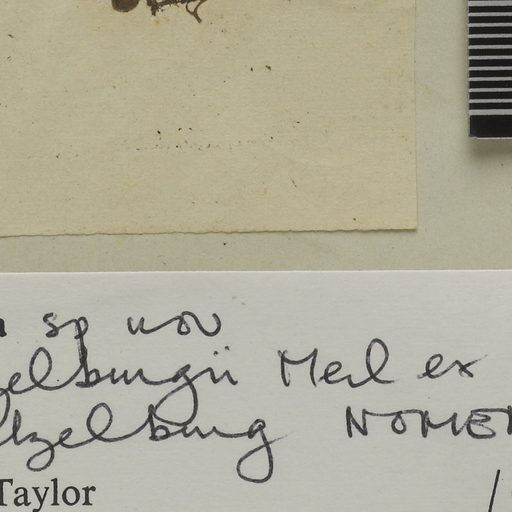 sp nov
zelburgii Merl ex
tzelburg NOMEN
Taylor